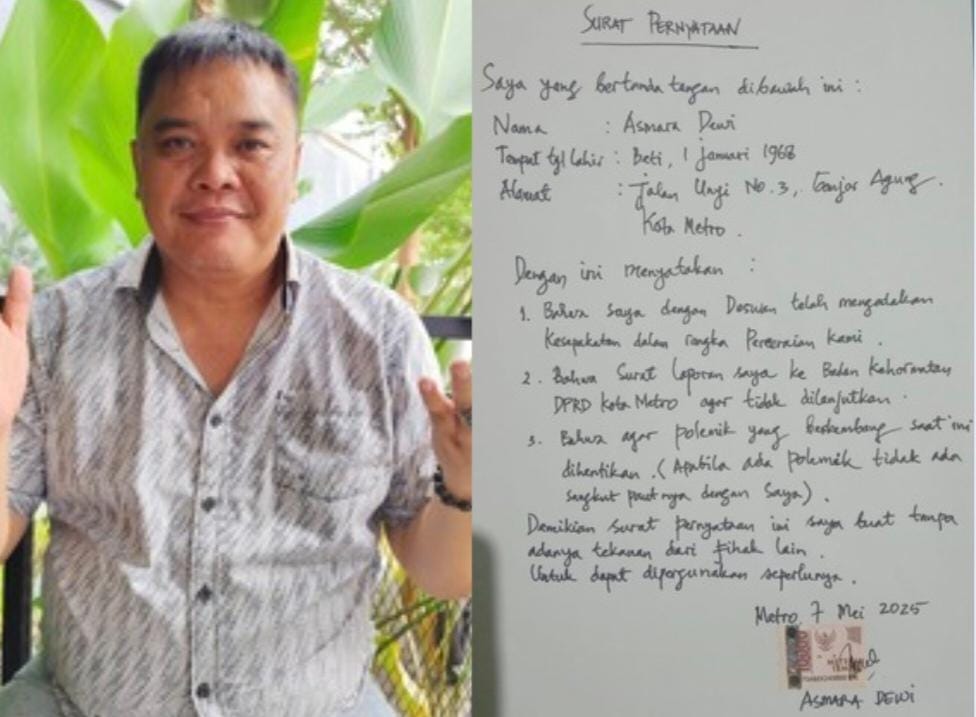 SURAT PERNYATAAN
Saya yang bertanda tangan dibawah ini :
Nama : Asmara Dewi
Tempat tgl lahir : Beti, 1 Januari 1968
Alamat : Jalan Ungi No. 3, Ganjar Agung.
Kota Metro .
Dengan ini menyatakan :
1. Bahwa saya dengan Deswan telah mengadakan
Kesepakatan dalam rangka Perceraian kami .
2. Bahwa Surat Laporan saya ke Badan Kehormatan
DPRD Kota Metro agar tidak dilanjutkan .
3. Bahwa agar polemik yang berkembang saat ini
dihentikan . (Apabila ada polemik tidak ada
sangkut pautnya dengan Saya) .
Demikian surat pernyataan ini saya buat tanpa
adanya tekanan dari Fihak lain .
Untuk dapat dipergunakan seperlunya .
Metro, 7 Mei 2025
10000
ASMARA DEWI